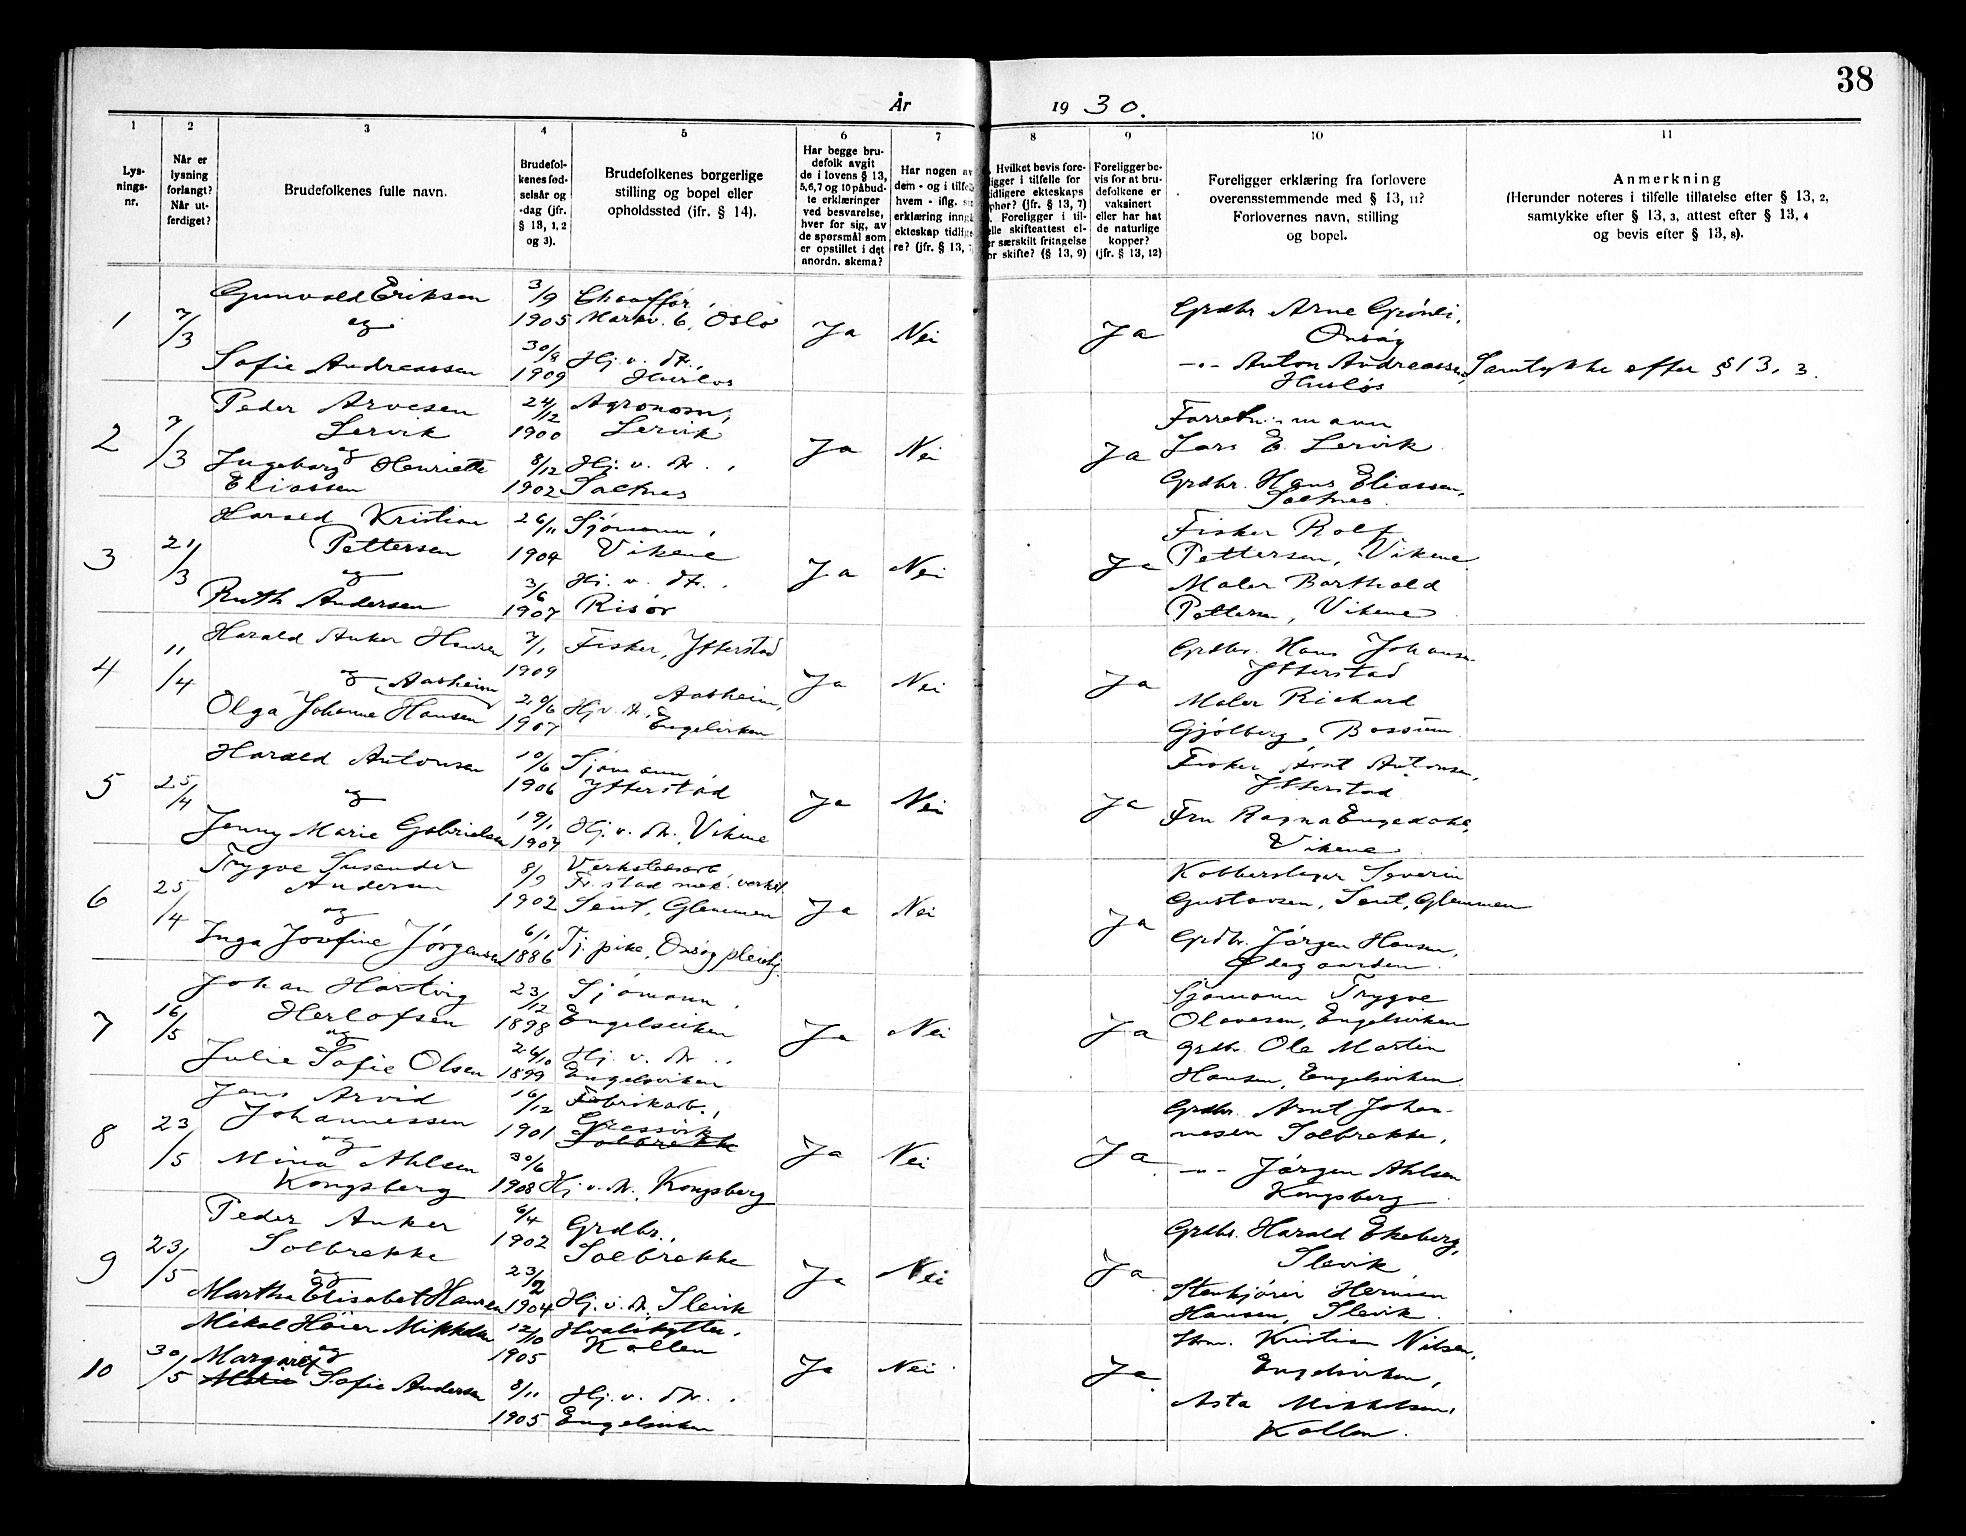 38
År 1930.
1 2 3 4 5 6 7 8 9 10 11
Lys-
nings-
nr.
Når er
lysning
forlangt?
Når ut-
ferdiget?
Brudefolkenes fulle navn.
Brudefol-
kenes fød-
selsår og
-dag (jfr.
§ 13, 1, 2
og 3).
Brudefolkenes borgerlige
stilling og bopel eller
opholdssted (ifr. § 14).
Har begge bru-
defolk avgit
de i lovens § 13,
5,6,7 og 10 påbud-
te erklæringer
ved besvarelse,
hver for sig, av
de spørsmål som
er opstillet i det
anordn. skema?
Har nogen av
dem - og i tilfelle
hvem - iflg. sin
erklæring inngå
ekteskap tidlige
re? (jfr. § 13, 7
Hvilket bevis fore-
ligger i tilfelle for
tidligere ekteskaps
ophør? (jfr. § 13, 7)
Foreligger i til-
elle skifteattest el-
er særskilt fritagelse
or skifte? (§ 13, 9)
Foreligger be-
vis for at bru-
defolkene er
vaksinert
eller har hat
de naturlige
kopper?
(jfr. § 13, 12)
Foreligger erklæring fra forlovere
overensstemmende med § 13, 11?
Forlovernes navn, stilling
og bopel.
Anmerkning
(Herunder noteres i tilfelle tillatelse efter § 13, 2,
samtykke efter § 13, 3, attest efter § 13, 4
og bevis efter § 13, 8).
1
7/3
Gunvald Eriksen
og
Sofie Andreassen
3/9
1905
30/8
1909
Chauffør,
Markv. 6, Oslo
Hj. v. dt.,
Husløs
Ja
Nei
Ja
Grdbr Arne Grønli,
Onsøy
-"- Anton Andreassen,
Husløs
Samtykke efter § 13, 3.
2
7/3
Peder Arvesen
Lervik
og
Ingeborg Henriette
Eliassen
24/12
1900
8/12
1902
Agronom,
Lervik
Hj. v. dt.,
Saltnes
Ja
Nei
Ja
Forretn.mann
Lars E. Lervik
Grdbr. Hans Eliassen,
Saltnes.
3
21/3
Harald Kristian
Pettersen
og
Ruth Andersen
26/11
1904
3/6
1907
Sjømann,
Vikene
Hj. v. dt.,
Risør
Ja
Nei
Ja
Fisker Rolf
Pettersen, Vikene
Maler Barthold
Pettersen, Vikene
4
11/4
Harald Anker Hansen
og Aasheim
Olga Johanne Hansen
7/1
1909
20/6
1907
Fisker, Ytterstad
Aasheim,
Hj. v. dt., Engelsviken
Ja
Nei
Ja
Grdbr. Hans Johansen
Ytterstad
Maler Richard
Gjølberg,
5
25/4
Harald Antonsen
og
Jenny Marie Gabrielsen
10/6
1906
19/1
1907
Sjømann,
Ytterstad
Hj. v. dt. Vikene
Ja
Nei
Ja
Fisker Arnt Antonsen,
Ytterstad
Fru Ragna Engedahl,
Vikene
6
25/4
Trygve Susander
Andersen
og
Inga Josefine Jørgensen
8/9
1902
6/1
1886
Verkstedsarb.
Fr.stad mek. verkst.
Sent, Glemmen
Tj. pike, Onsøy pleiehj.
Ja
Nei
Ja
Kobberslager Severin
Gustavsen, Sent, Glemmen
Grdbr. Jørgen Hansen,
Ødegaarden.
7
16/5
Johan Hartvig
Herlofsen
og
Julie Sofie Olsen
23/12
1898
26/10
1899
Sjømann,
Engelsviken
Hj. v. dt.,
Engelsviken
Ja
Nei
Ja
Sjømann Trygve
Olavesen, Engelsviken
Grdbr. Ole Martin
Hansen, Engelsviken.
8
23/5
Jens Arvid
Johannessen
og
Mina Ahlsen
Kongsberg
16/12
1901
30/6
1908
Fabrikarb.,
Gressvik
Solbrekke
Hj. v. dt., Kongsberg
Ja
Nei
Ja
Grdbr. Arnt Johan-
nesen Solbrekke,
-"- Jørgen Ahlsen
Kongsberg
9
23/5
Peder Anker
Solbrekke
og
Martha Elisabet Hansen
6/4
1902
23/2
1904
Grdbr.,
Solbrekke
Hj. v. dt. Slevik
Ja
Nei
Ja
Grdbr. Harald Ekeberg,
Slevik
Stenhjører
Hansen, Slevik.
10
30/5
Mikal Høier Mikkelsen
og
Margaret
Marie Sofie Andersen
12/10
1905
8/11
1905
Hvalskytter,
Kallen
Hj. v. dt.,
Engelsviken
Ja
Nei
Ja
Stm. Kristian Nilsen,
Engelsviken,
Asta Mikkelsen,
Kallen.